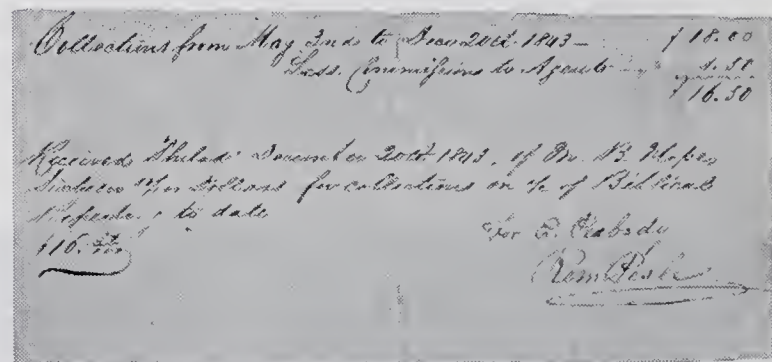 Collections from May 2nd to Decr 20th 1843 — $18.00
Less Commissions to Agents 1.50
$16.50
Received Philada December 20th 1843, of Mr. B.
Sixteen 50/100 Dollars for collections on a/c of Biblical
to date
$16. 50/100
For Peabody